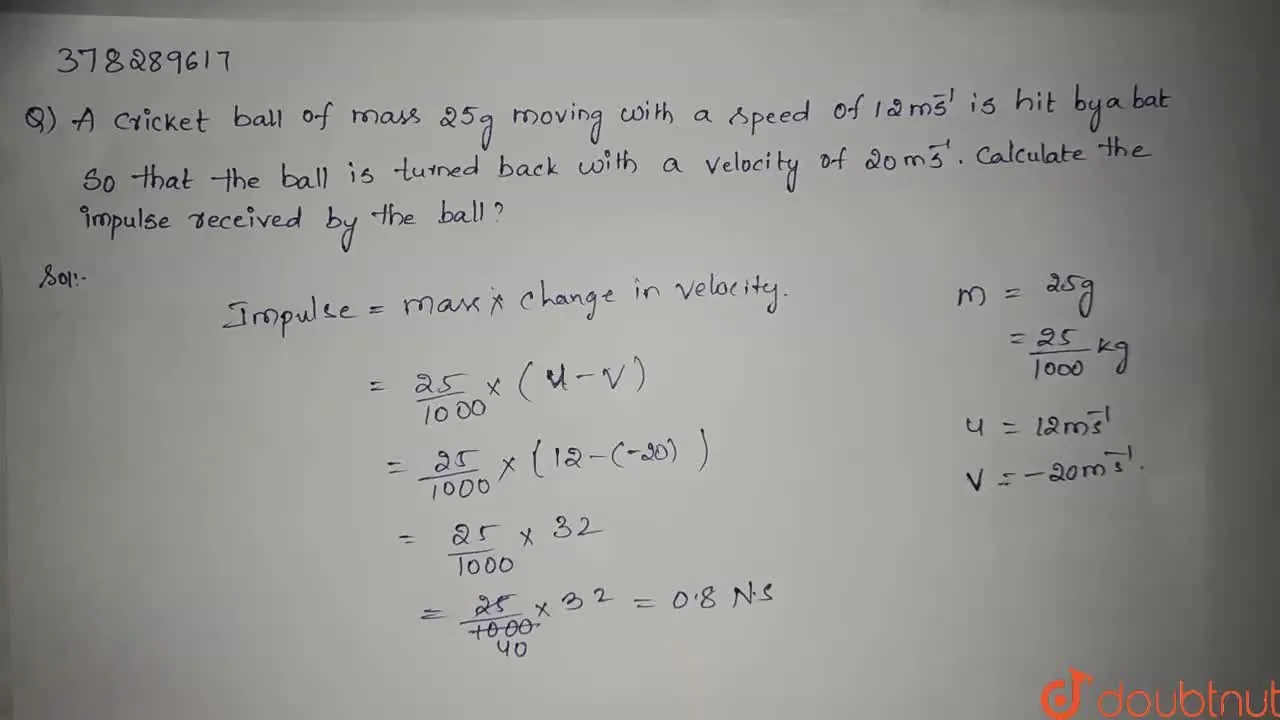 378289617
Q) A cricket ball of mass 25g moving with a speed of 12ms⁻¹ is hit by a bat
So that the ball is turned back with a velocity of 20ms⁻¹. Calculate the
impulse received by the ball?
Sol:-
Impulse = mass × change in velocity.
m = 25g
= 25/1000 kg
= 25/1000 × (u - v)
u = 12ms⁻¹
= 25/1000 × (12 - (-20))
v = -20ms⁻¹.
= 25/1000 × 32
= 25/1000 × 32 = 0.8 N.s
40
doubtnut